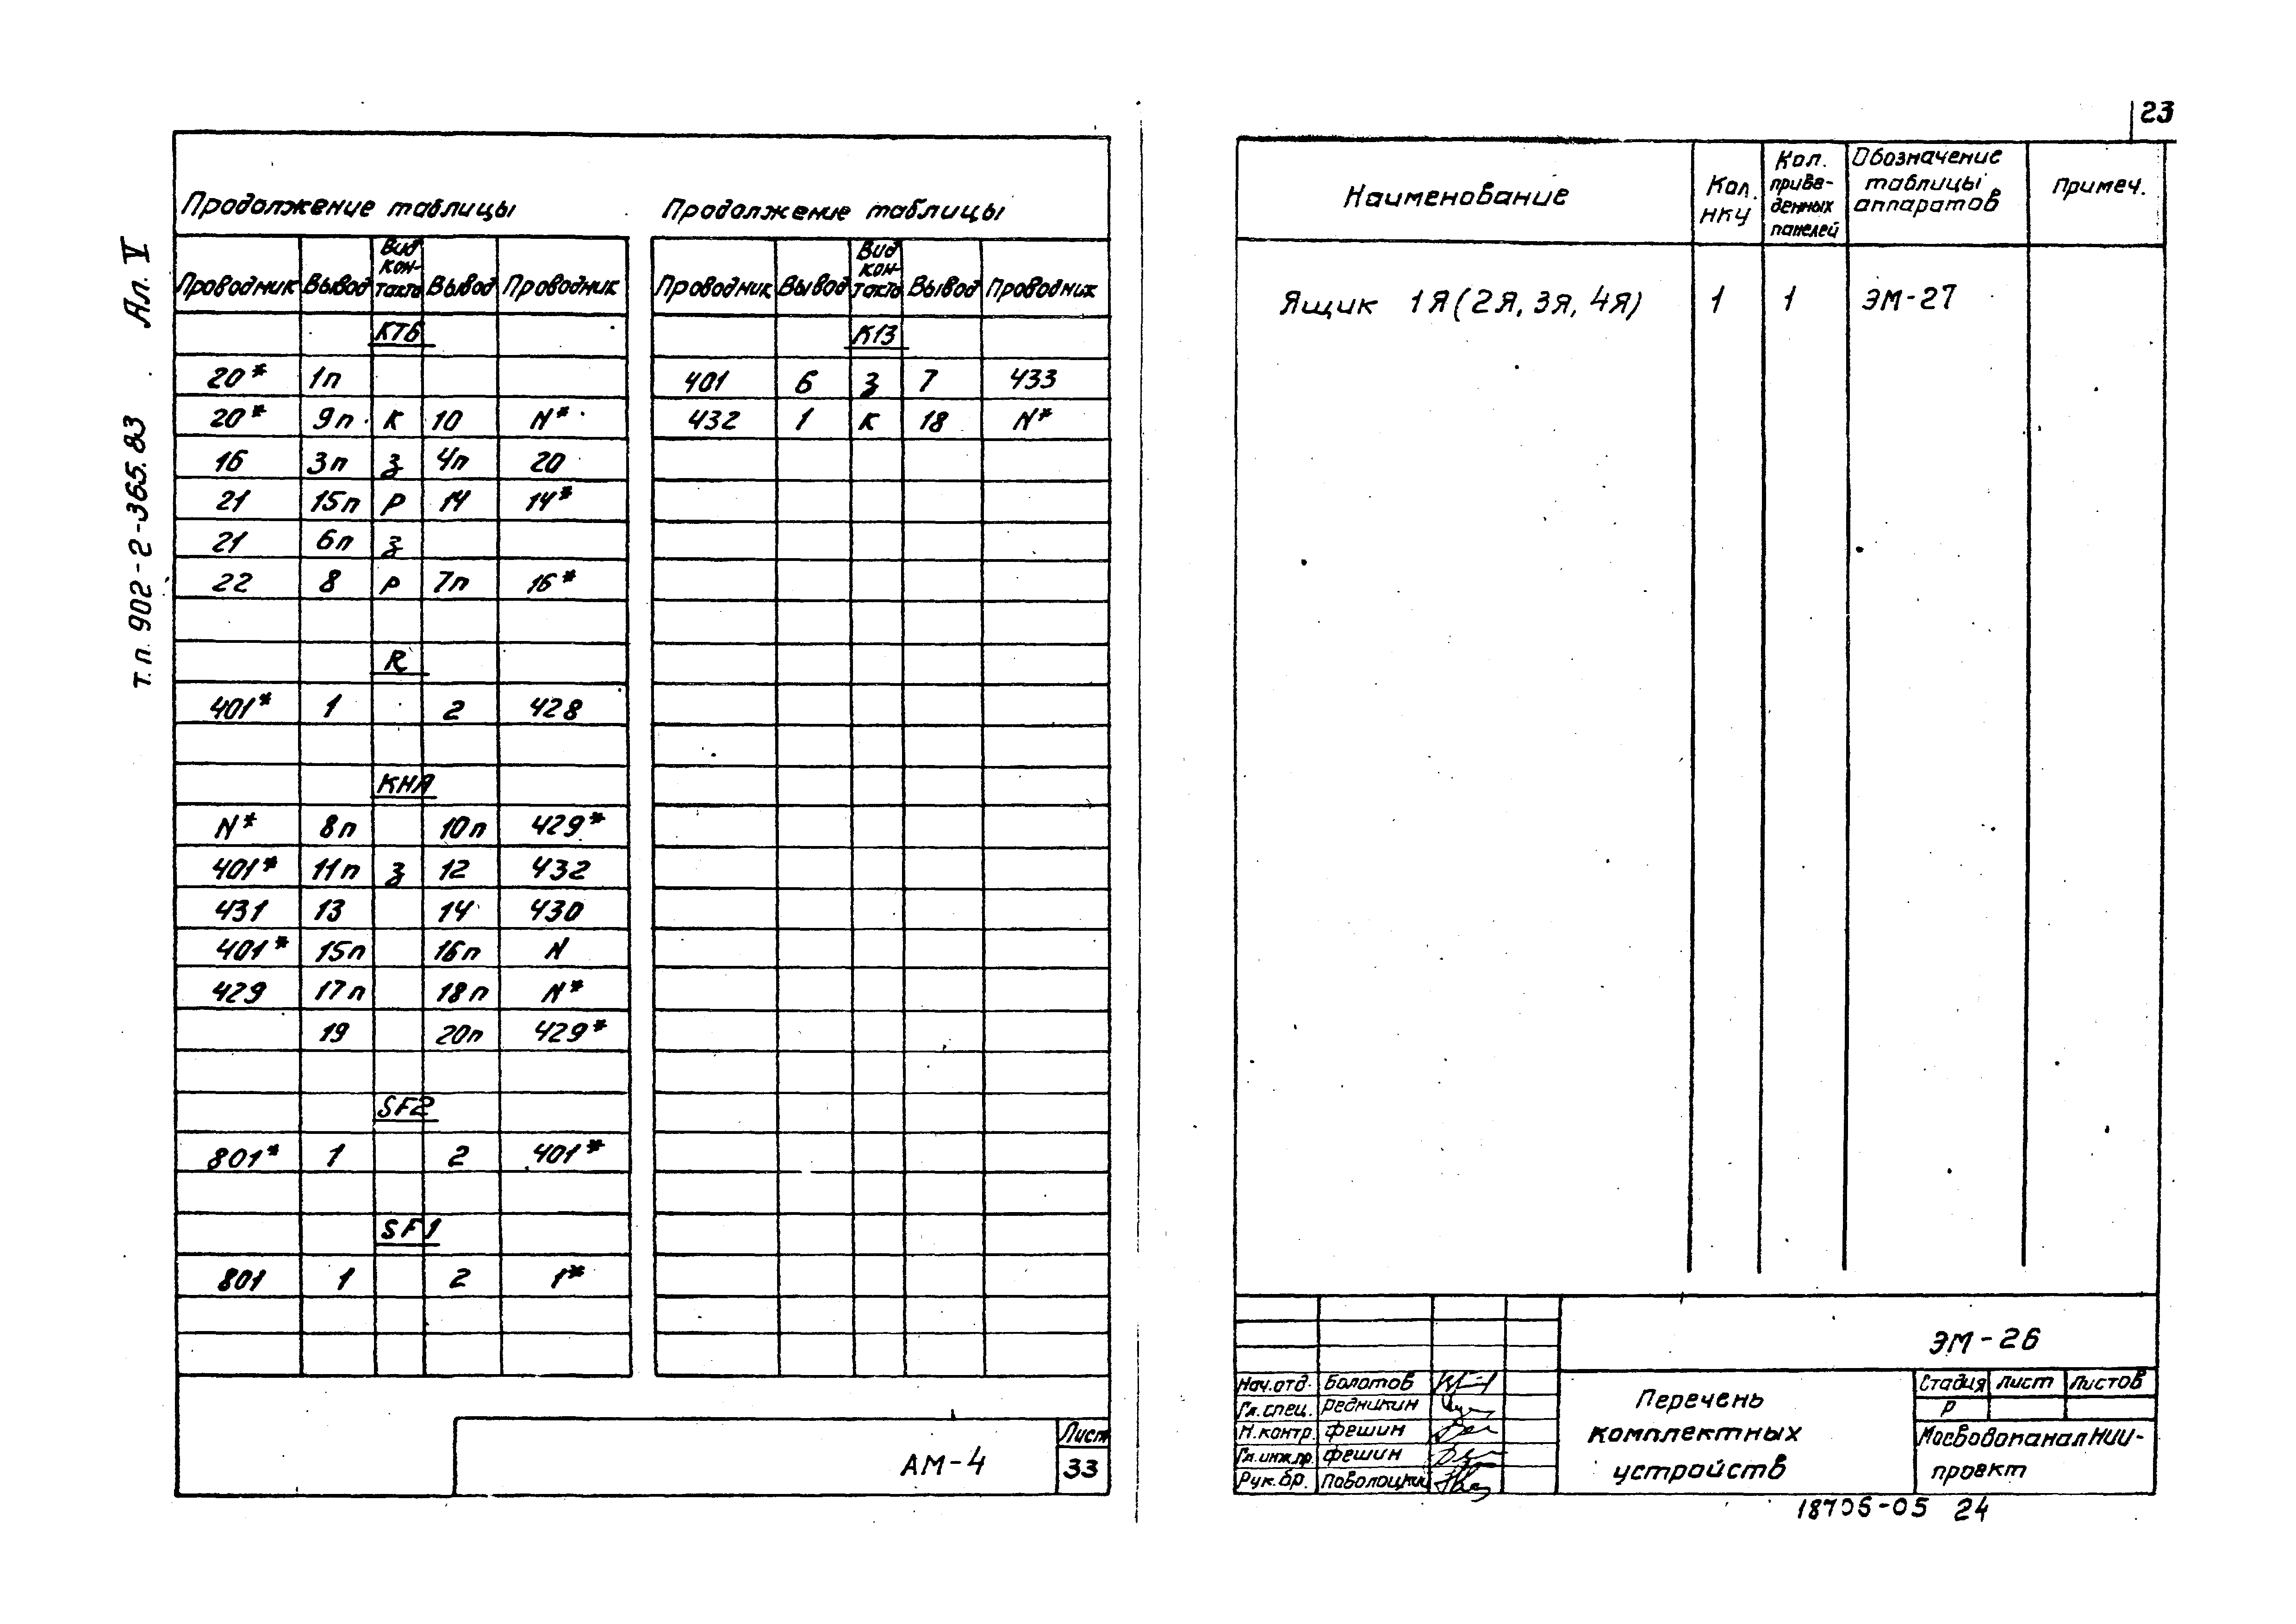 23
Ал. V
т.п. 902-2-365.83
Продолжение таблицы
Проводник Вывод Вид кон-такта Вывод Проводник
КТ6
20* 1п
20* 9п К 10 N*
16 3п З 4п 20
21 15п Р 14 14*
21 6п З
22 8 Р 7п 16*
R
401* 1 2 428
КНА
N* 8п 10п 429*
401* 11п З 12 432
431 13 14 430
401* 15п 16п N
429 17п 18п N*
19 20п 429*
SF2
801* 1 2 401*
SF1
801 1 2 1*
Продолжение таблицы
Проводник Вывод Вид кон-такта Вывод Проводник
К13
401 6 З 7 433
432 1 К 18 N*
АМ-4
Лист
33
Наименование Кол. НКУ Кол. приве-денных панелей Обозначение таблицы аппаратов Примеч.
Ящик 1Я (2Я, 3Я, 4Я) 1 1 ЭМ-27
ЭМ-26
Нач.отд. Болотов
Гл. спец. Редникин
Н.контр. Фешин
Гл.инж.пр. Фешин
Рук.бр. Поволоцкий
Перечень
комплектных
устройств
Стадия Лист Листов
Р
МосводоканалНИИ-
проект
18706-05 24